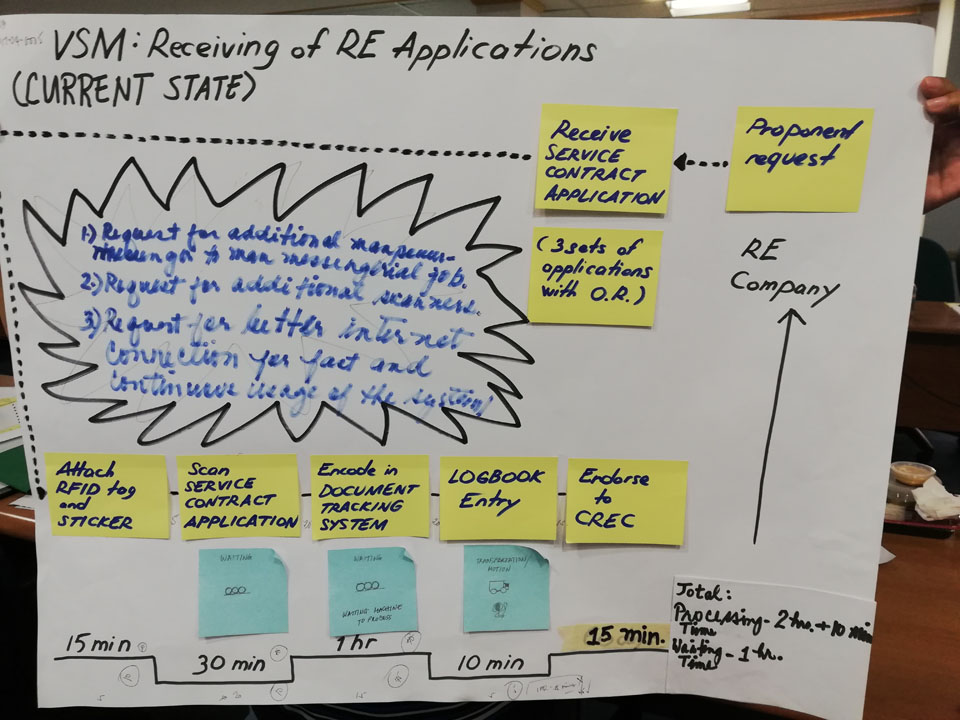 VSM: Receiving of RE Applications
(CURRENT STATE)
Receive
SERVICE
CONTRACT
APPLICATION
Proponent
request
(3 sets of
applications
with O.R.)
RE
Company
1.) Request for additional manpower-
to man messengerial job.
2.) Request for additional scanners.
3.) Request for better internet
connection for fast and
continuous usage of the system/
Attach
RFID tag
and
STICKER
Scan
SERVICE
CONTRACT
APPLICATION
Encode in
DOCUMENT
TRACKING
SYSTEM
LOGBOOK
Entry
Endorse
to
CREC
WAITING
WAITING
WAITING MACHINE
TO PROCESS
TRANSPORTATION/
MOTION
15 min
30 min
1 hr
10 min
15 min.
Total:
Processing - 2 hrs. + 10 min
Time
Waiting - 1 hr.
Time